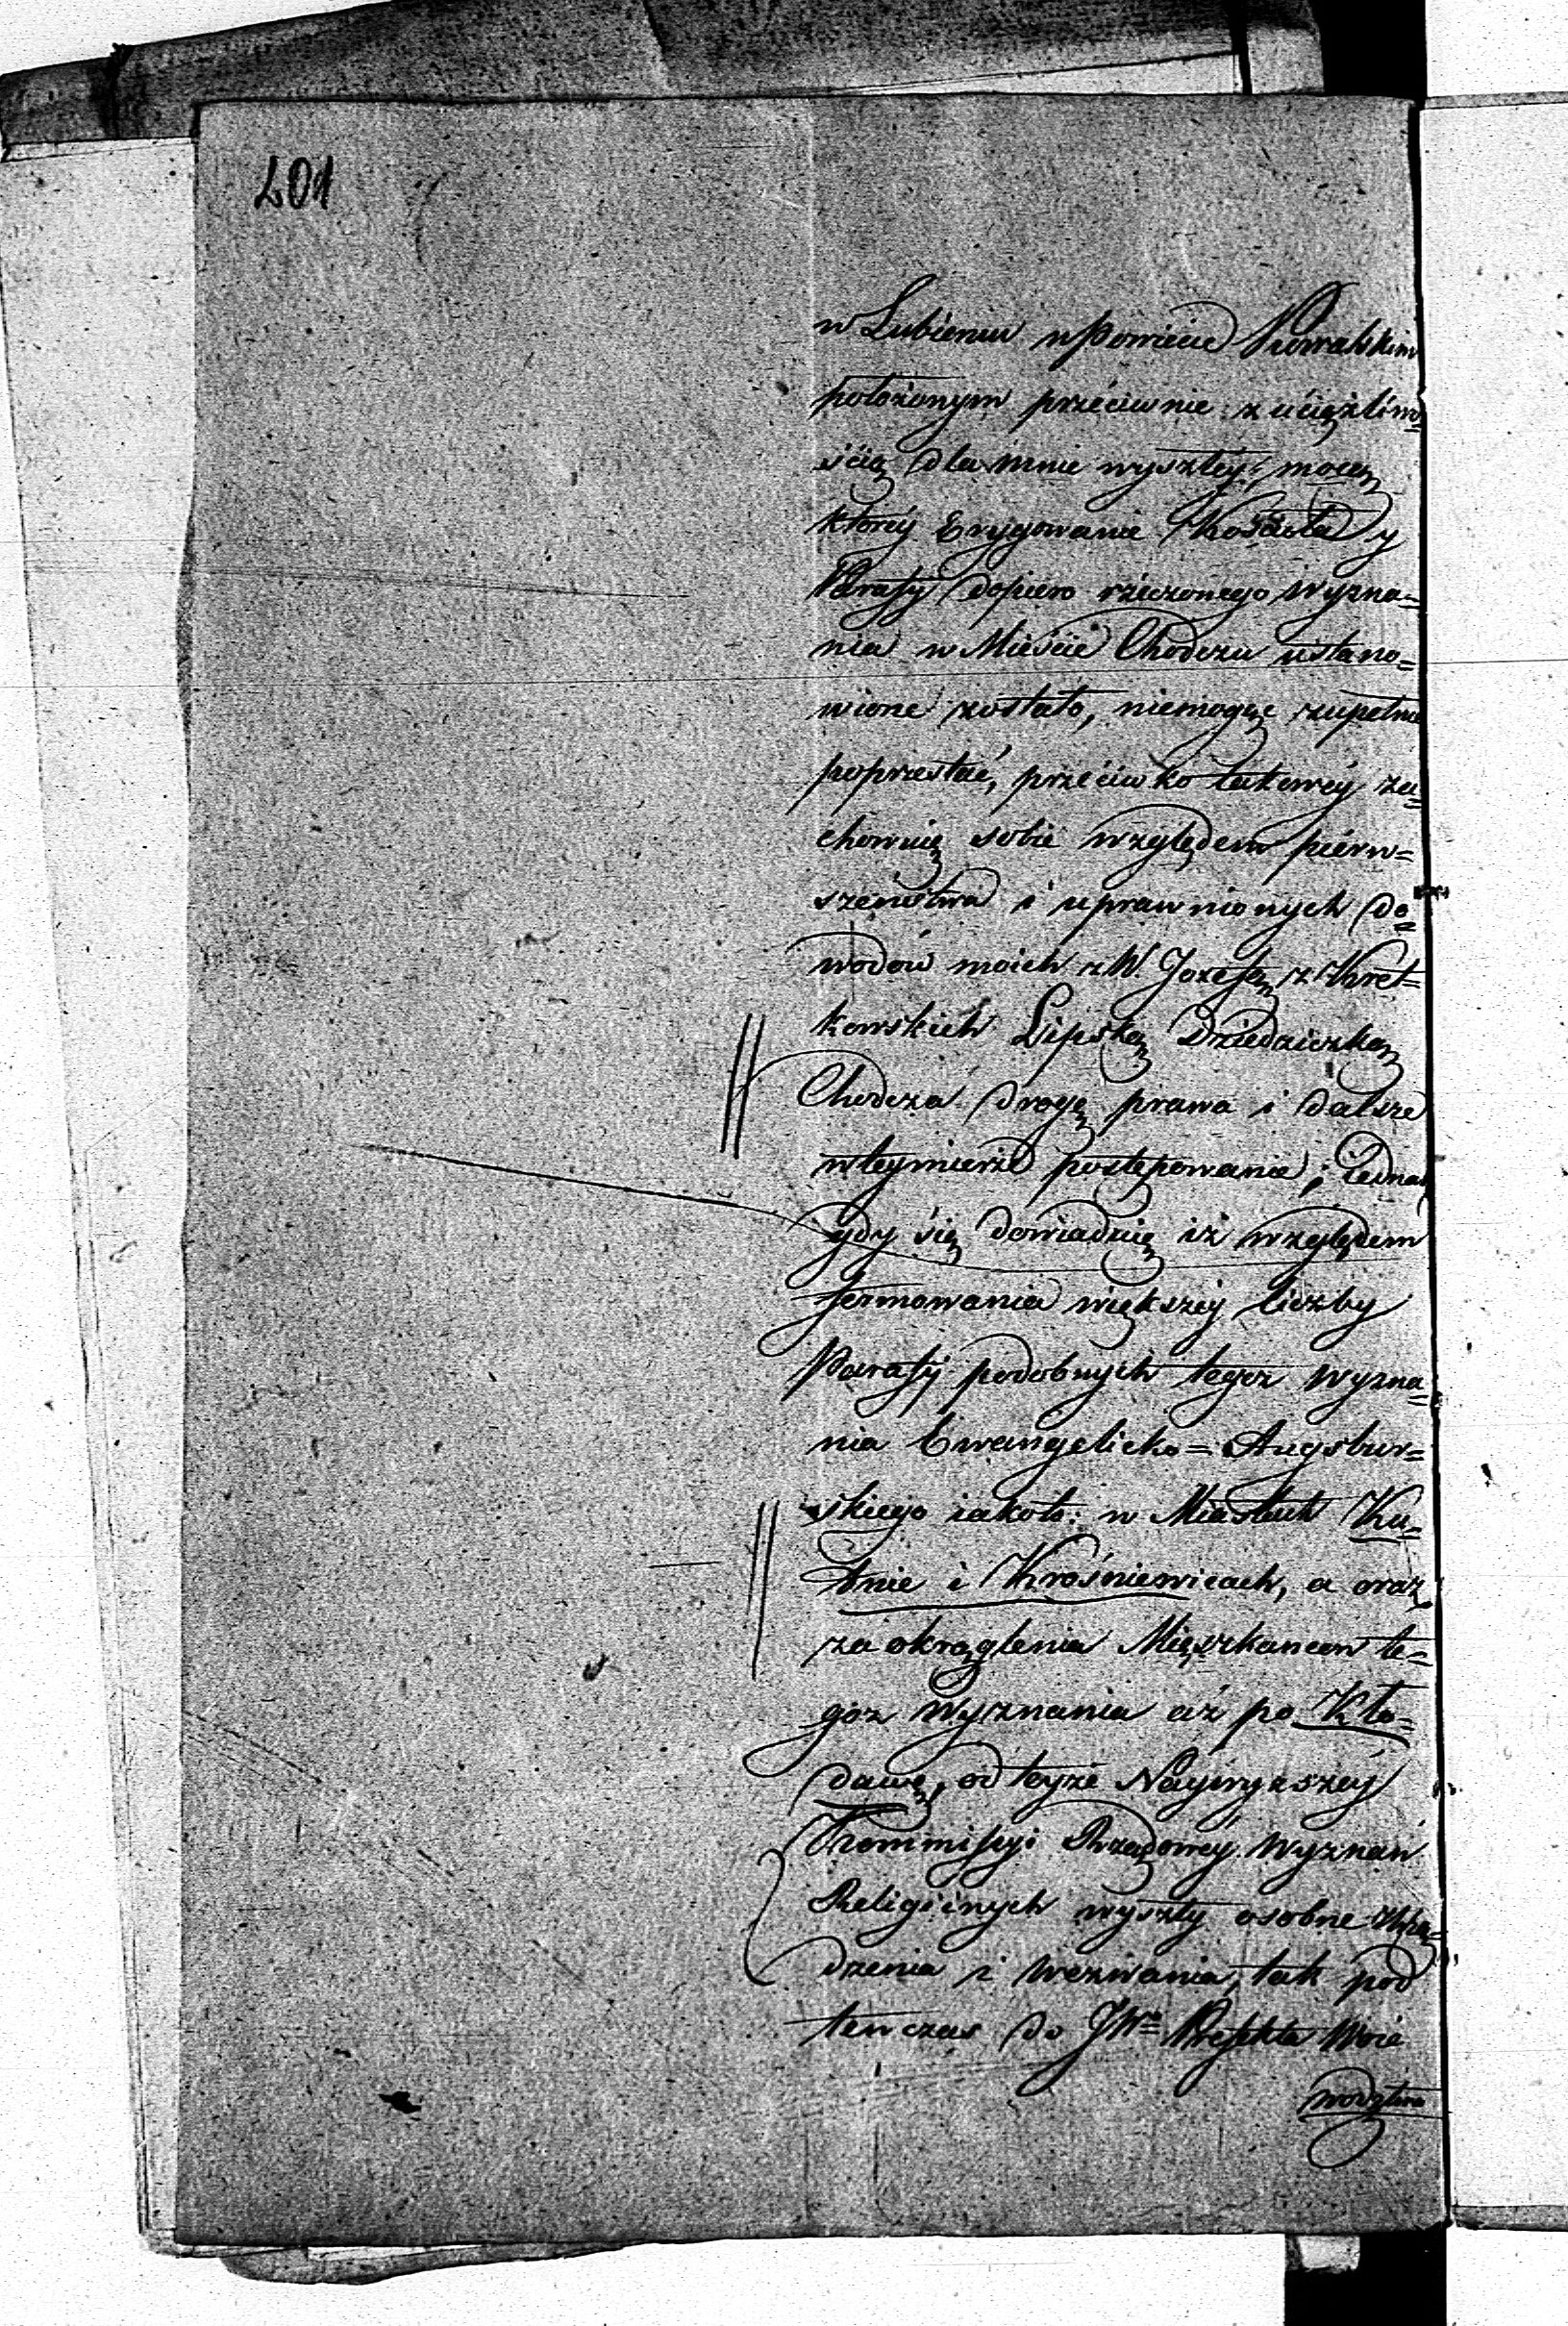 201
w Lubieniu w Powiecie Kowalskim
położonym przéciwnie z uciążliwo=
ścią dla mnie wyszłéy, mocą
któréy Erygowanie Kościoła y
Parafy dopiero rzeczonego Wyzna=
nia w Mieście Chodczu ustano=
wione zostało, niemogąc zupełnie
poprzestać, przéciwko takowéy za=
chowuię sobie względem piérw=
szeństwa i uprawnionych do=
wodów moich z W. Jozefą z Kret=
kowskich Lipską Dziedziczką
Chodcza drogę prawa i dalsze
wteymierze postępowanie; Jednak
gdy się dowiaduię iż względem
formowania większéy liczby
Parafij podobnych tegoz Wyzna=
nia Ewangelicko=Augsbur=
skiego iakoto: w Miastach Ku=
tnie i Krośniewicach, a oraz
zaokrąglenia Mięszkancow te=
goz Wyznania aż po Kło=
dawę, od teyże Naywyższéy
Kommissyi Rządowéy Wyznań
Religiinych wyszły osobne
dzenia i Wezwania, tak pod
tenczas do JWo Prefekta Woie
wodztwa